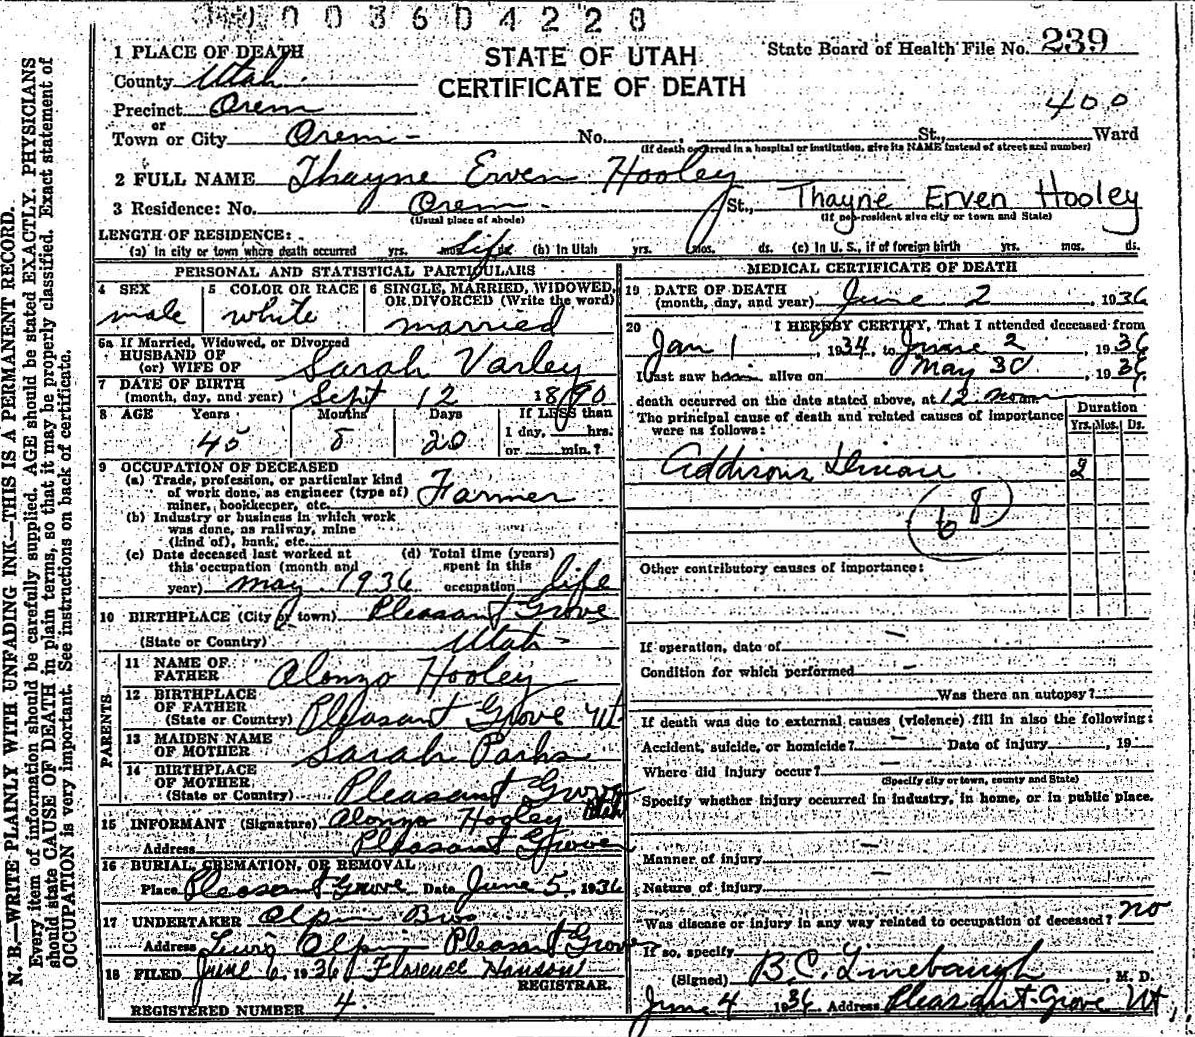 0 0 3 6 0 4 2 2 8
1 PLACE OF DEATH
County Utah
STATE OF UTAH
CERTIFICATE OF DEATH
State Board of Health File No. 239
400
Precinct Orem
or
Town or City Orem - No. , St., Ward
(If death occurred in a hospital or institution, give its NAME instead of street and number)
2 FULL NAME Thayne Erven Hooley
3 Residence: No. Orem - St., Thayne Erven Hooley
(Usual place of abode) (If non-resident give city or town and State)
LENGTH OF RESIDENCE:
(a) In city or town where death occurred yrs. mos. Life ds. (b) In Utah yrs. mos. ds. (c) In U. S., if of foreign birth yrs. mos. ds.
PERSONAL AND STATISTICAL PARTICULARS
4 SEX male
5 COLOR OR RACE white
6 SINGLE, MARRIED, WIDOWED, OR DIVORCED (Write the word) married
6a If Married, Widowed, or Divorced
HUSBAND OF
(or) WIFE OF Sarah Varley
7 DATE OF BIRTH
(month, day, and year) Sept 12 1890
8 AGE Years Months Days If LESS than
45 8 20 1 day, hrs.
or min.?
9 OCCUPATION OF DECEASED
(a) Trade, profession, or particular kind
of work done, as engineer (type of)
miner, bookkeeper, etc. Farmer
(b) Industry or business in which work
was done, as railway, mine
(kind of), bank, etc.
(c) Date deceased last worked at
this occupation (month and
year) may 1936
(d) Total time (years)
spent in this
occupation life
10 BIRTHPLACE (City or town) Pleasant Grove
(State or Country) Utah -
PARENTS
11 NAME OF
FATHER Alonzo Hooley
12 BIRTHPLACE
OF FATHER
(State or Country) Pleasant Grove Ut
13 MAIDEN NAME
OF MOTHER Sarah Parks
14 BIRTHPLACE
OF MOTHER
(State or Country) Pleasant Grove Utah
15 INFORMANT (Signature) Alonzo Hooley
Address Pleasant Grove
16 BURIAL, CREMATION, OR REMOVAL
Place Pleasant Grove Date June 5, 1936
17 UNDERTAKER Olpin Bros
Address Olpin Pleasant Grove
18 FILED June 6, 1936 Florence Hanson
REGISTRAR.
REGISTERED NUMBER 4
MEDICAL CERTIFICATE OF DEATH
19 DATE OF DEATH
(month, day, and year) June 2, 1936
20 I HEREBY CERTIFY, That I attended deceased from
Jan 1, 1934, to June 2, 1936
I last saw him alive on May 30, 1936
death occurred on the date stated above, at 12 noon m.
The principal cause of death and related causes of importance
were as follows:
Duration
Yrs. Mos. Ds.
Addisons Disease 2
68
Other contributory causes of importance:
If operation, date of -
Condition for which performed -
Was there an autopsy?
If death was due to external causes (violence) fill in also the following:
Accident, suicide, or homicide? - Date of injury , 19
Where did injury occur? -
(Specify city or town, county and State)
Specify whether injury occurred in industry, in home, or in public place.
Manner of injury -
Nature of injury -
Was disease or injury in any way related to occupation of deceased? no
If so, specify
(Signed) B. C. Linebaugh, M. D.
June 4 1936 Address Pleasant Grove Ut
N. B.—WRITE PLAINLY WITH UNFADING INK—THIS IS A PERMANENT RECORD.
Every item of information should be carefully supplied. AGE should be stated EXACTLY. PHYSICIANS
should state CAUSE OF DEATH in plain terms, so that it may be properly classified. Exact statement of
OCCUPATION is very important. See instructions on back of certificate.